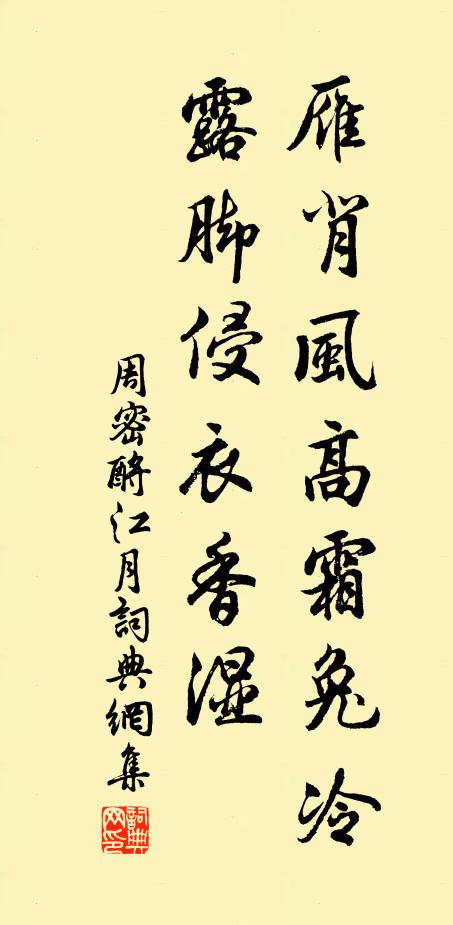 雁背風高霜兔冷
露脚侵衣香濕
周密酹江月詞典網集
詞典網印